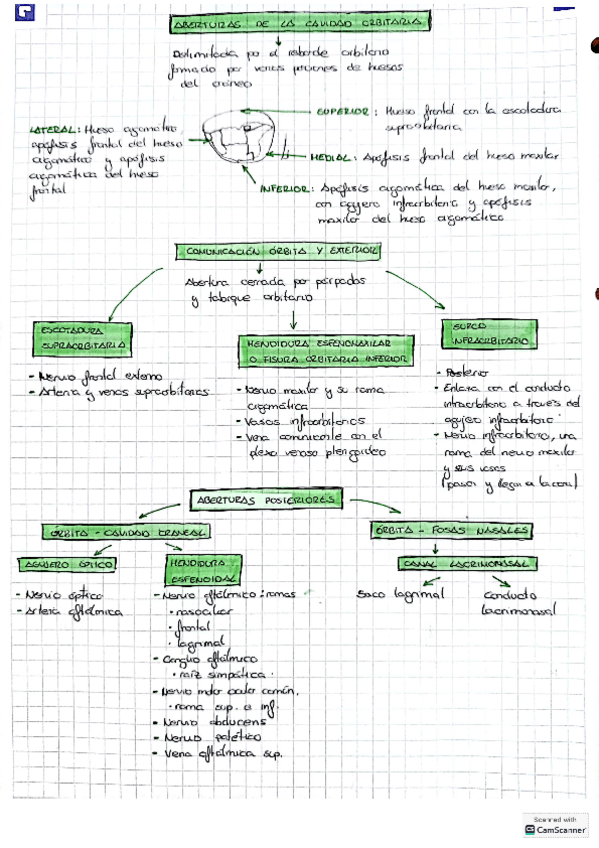 ABERTURAS DE LA CAVIDAD ORBITARIA
Delimitada por el reborde orbitario
formado por varias porciones de huesos
del cráneo
SUPERIOR: Hueso frontal con la escotadura
supraorbitaria
LATERAL: Hueso cigomático,
apófisis frontal del hueso
cigomático y apófisis
cigomática del hueso
frontal
MEDIAL: Apófisis frontal del hueso maxilar
INFERIOR: Apófisis cigomática del hueso maxilar,
con agujero infraorbitario y apófisis
maxilar del hueso cigomático
COMUNICACIÓN ÓRBITA Y EXTERIOR
Abertura cerrada por párpados
y tabique orbitario
ESCOTADURA
SUPRAORBITARIA
- Nervio frontal externo
- Arteria y venas supraorbitarias
HENDIDURA ESFENOMAXILAR
O FISURA ORBITARIA INFERIOR
- Nervio maxilar y su rama
cigomática
- Vasos infraorbitarios
- Vena comunicante con el
plexo venoso pterigoideo
SURCO
INFRAORBITARIO
- Posterior
- Enlaza con el conducto
infraorbitario a través del
agujero infraorbitario
- Nervio infraorbitario, una
rama del nervio maxilar
y sus vasos
(pasan y llegan a la cara)
ABERTURAS POSTERIORES
ÓRBITA - CAVIDAD CRANEAL
ÓRBITA - FOSAS NASALES
AGUJERO ÓPTICO
- Nervio óptico
- Arteria oftálmica
HENDIDURA
ESFENOIDAL
- Nervio oftálmico: ramas
• nasociliar
• frontal
• lagrimal
- Ganglio oftálmico
• raíz simpática
- Nervio motor ocular común,
• rama sup. e inf.
- Nervio abducens
- Nervio patético
- Vena oftálmica sup.
CANAL LACRIMONASAL
Saco lagrimal
Conducto
lacrimonasal
Scanned with
CamScanner